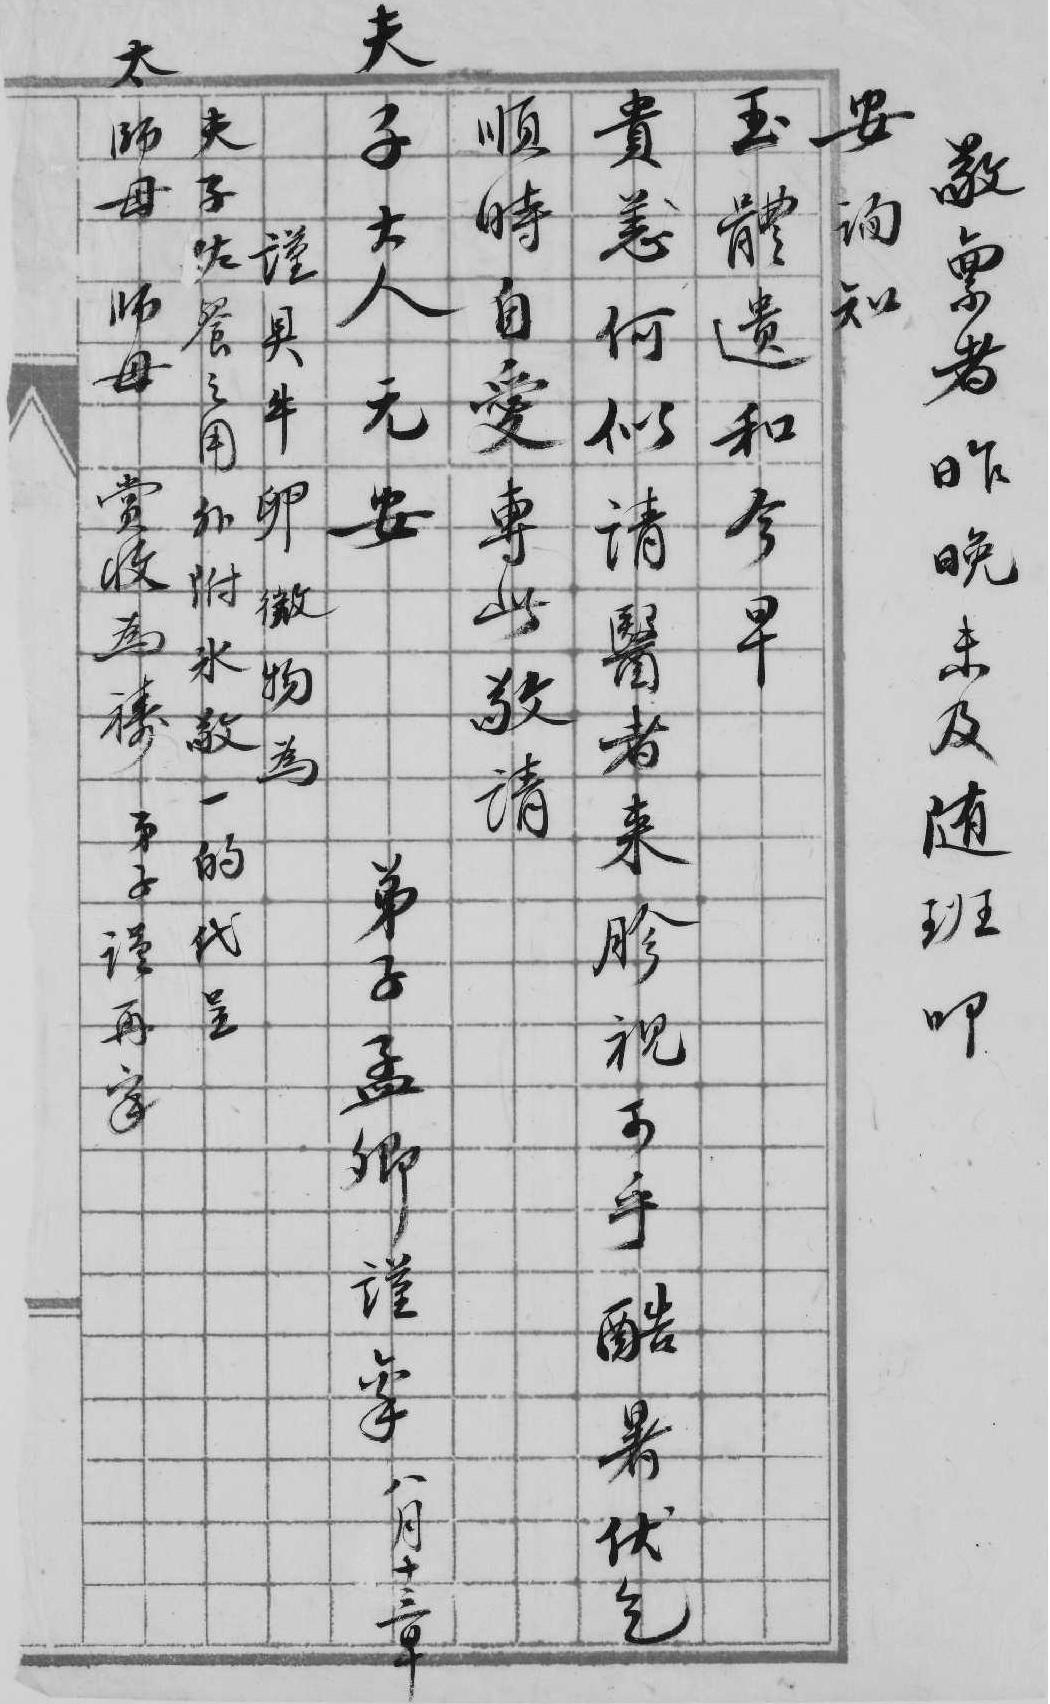 敬稟者昨晚未及随班叩
安詢知
玉體違和今早
貴恙何似請醫者来胗視可乎酷暑伏乞
順時自愛專此敬請
夫子大人无安
弟子孟卿謹稟 八月十三章
謹具牛卵微物為
夫子佐餐之用外附氷敬一的代呈
太師母 師母 賞收為禱 弟子謹再字